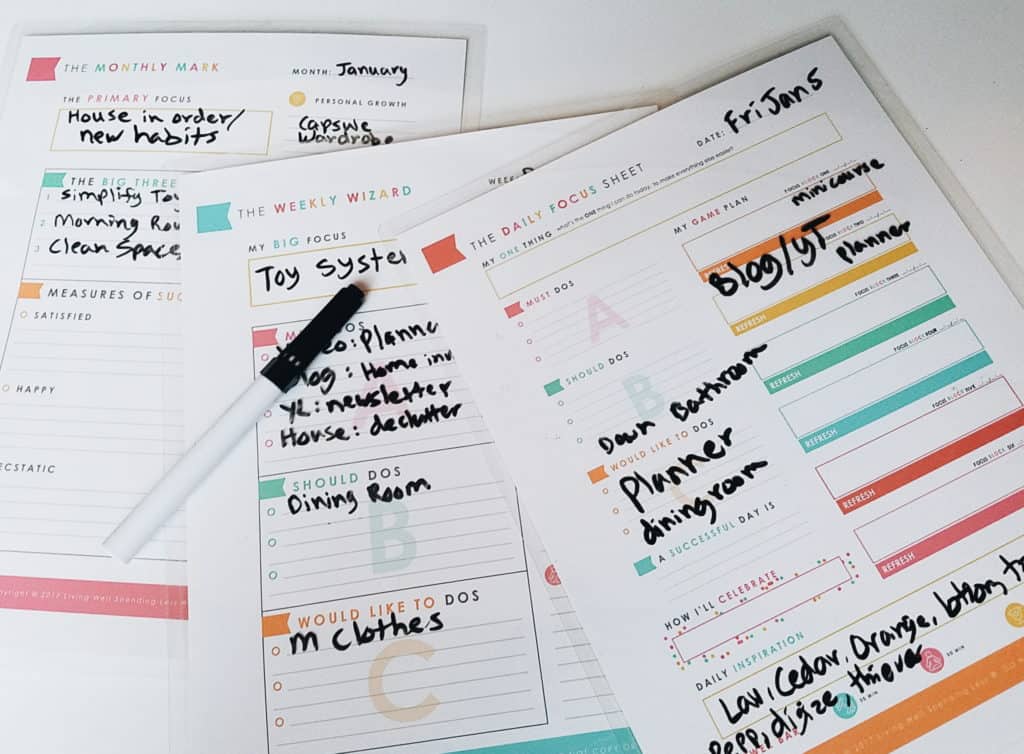 THE MONTHLY MARK
MONTH: January
THE PRIMARY FOCUS
House in order/
new habits
PERSONAL GROWTH
Capsule
wardrobe
THE BIG THREE
1 Simplify Toy
2 Morning Rou
3 Clean Spaces
MEASURES OF SUC
SATISFIED
HAPPY
ECSTATIC
opyright © 2017 Living Well Spending Less
THE WEEKLY WIZARD
WEEK:
MY BIG FOCUS
Toy System
DOS
: Planne
: Home inv
YL: newsletter
House: declutter
A
SHOULD DOS
Dining Room
B
WOULD LIKE TO DOS
M Clothes
C
NOT COPY OR
THE DAILY FOCUS SHEET
DATE: Fri Jan 5
MY ONE THING what's the ONE thing I can do today, to make everything else easier?
MUST DOS
A
SHOULD DOS
B
Down Bathroom
WOULD LIKE TO DOS
planner
dining room
A SUCCESSFUL DAY IS
HOW I'LL CELEBRATE
DAILY INSPIRATION
Lav, Cedar, Orange,
Pepp, digize, thieves
MY GAME PLAN
FOCUS BLOCK ONE
mini course
FOCUS BLOCK TWO
Blog/YT
planner
REFRESH
FOCUS BLOCK THREE
REFRESH
FOCUS BLOCK FOUR
REFRESH
FOCUS BLOCK FIVE
REFRESH
FOCUS BLOCK SIX
REFRESH
30 MIN
2017 Living Well Spending Less